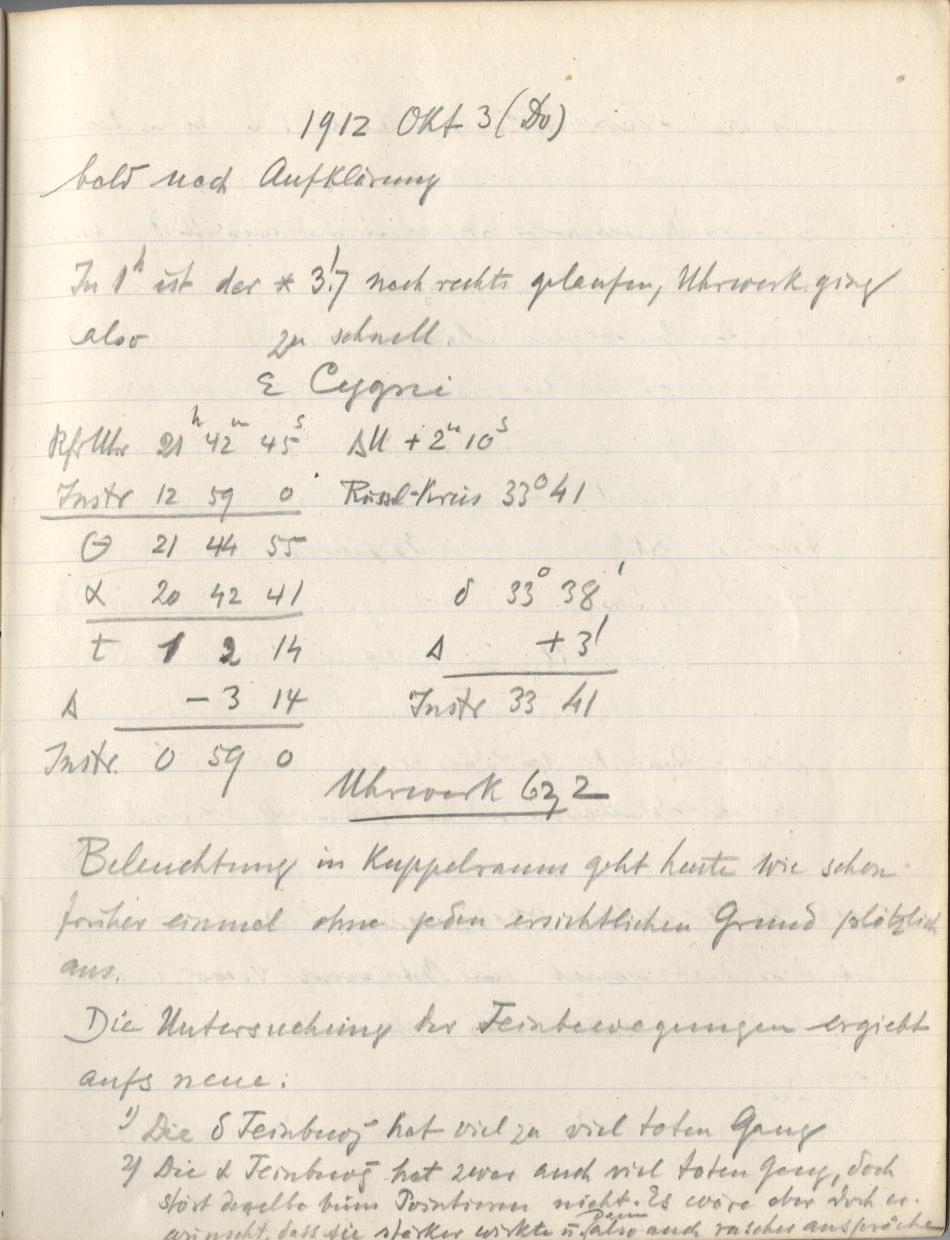 1912 Okt 3 (Do)
bald nach Aufklärung
In 1h ist der * 3!7 nach rechts gelaufen, Uhrwerk ging
also zu schnell.
ε Cygni
RfrUhr 21h 42m 45s ΔU + 2m 10s
Instr 12 59 0 Rössl-Kreis 33° 41'
Θ 21 44 55
α 20 42 41 δ 33° 38'
t 1 2 14 Δ + 3'
Δ − 3 14 Instr 33 41
Instr. 0 59 0
Uhrwerk 62,2
Beleuchtung in Kuppelraum geht heute wie schon
früher einmal ohne jeden ersichtlichen Grund plötzlich
aus.
Die Untersuchung der Feinbewegungen ergiebt
aufs neue:
1) Die δ Feinbewg hat viel zu viel toten Gang
2) Die α Feinbewg hat zwar auch viel toten Gang, doch
stört derselbe beim Pointieren nicht. Es wäre aber doch er-
wünscht, dass sie stärker wirkte u. dann also auch rascher anspräche